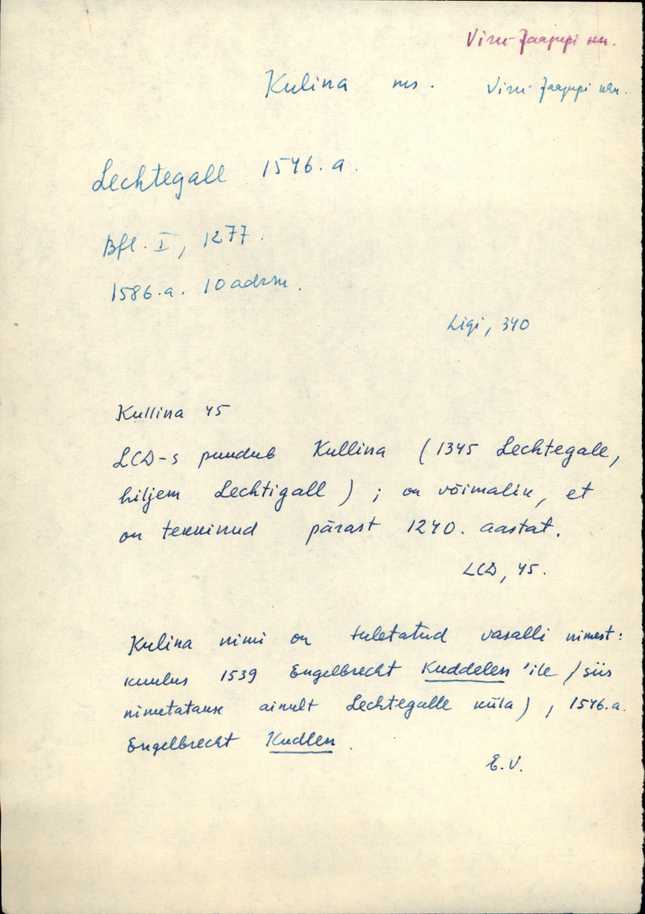 Viru-Jaagupi khk.
Kulina ms. Viru-Jaagupi khk.
Lechtegall 1546.a.
Bfl. I, 1277.
1586.a. 10 adrm.
Ligi, 340
Kullina 45
LCD-s puudub Kullina (1345 Lechtegale,
hiljem Lechtigall); on võimalik, et
on tekkinud pärast 1240. aastat.
LCD, 45.
Kulina nimi on tuletatud vasalli nimest:
kuulus 1539 Engelbrecht Kuddelen'ile /siis
nimetatakse ainult Lechtegalle küla), 1546.a.
Engelbrecht Kudlen.
E.V.